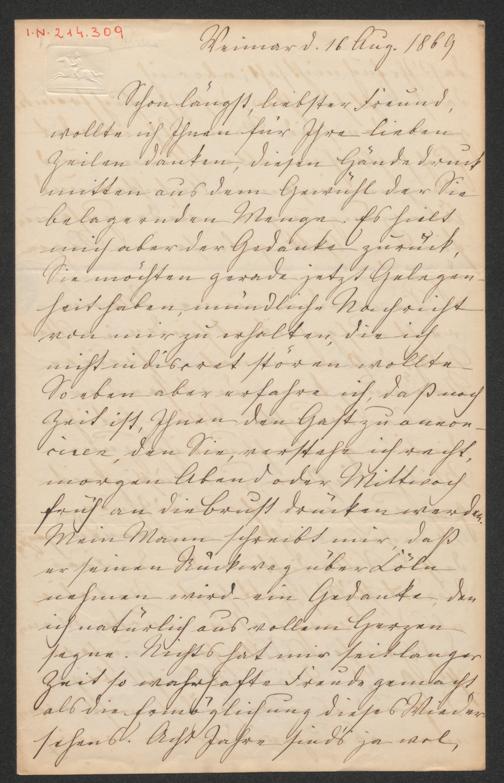 I.N. 214.309
Weimar d. 16 Aug. 1869
Schon längst, liebster Freund,
wollte ich Ihnen für Ihre lieben
Zeilen danken, diesen Händedruck
mitten aus dem Gewühl der Sie
belagernden Menge. Es hielt
mich aber der Gedanke zurück,
Sie möchten gerade jetzt Gelegen-
heit haben, mündliche Nachricht
von mir zu erhalten, die ich
nicht indiscret stören wollte
So eben aber erfahre ich, daß noch
Zeit ist, Ihnen den Gast zu annon-
ciren, den Sie, verstehe ich recht,
morgen Abend oder Mittwoch
früh an die Brust drücken werden.
Mein Mann schreibt mir, daß
er seinen Rückweg über Cöln
nehmen wird ein Gedanke, den
ich natürlich aus vollem Herzen
segne. Nichts hat mir seit langer
Zeit so wahrhafte Freude gemacht
als die Ermöglichung dieses Wieder
sehens. Acht Jahre sind's ja wol,